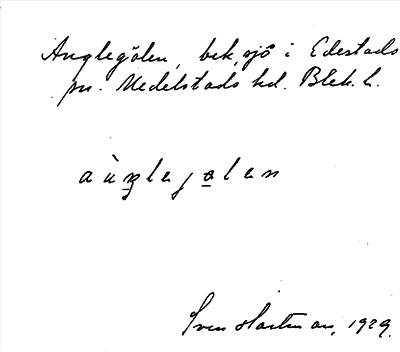 Anglegölen, bek, sjö i Edestads
sn. Medelstads hd. Blek. l.
aùŋlejølen
Sven Hartman, 1929.